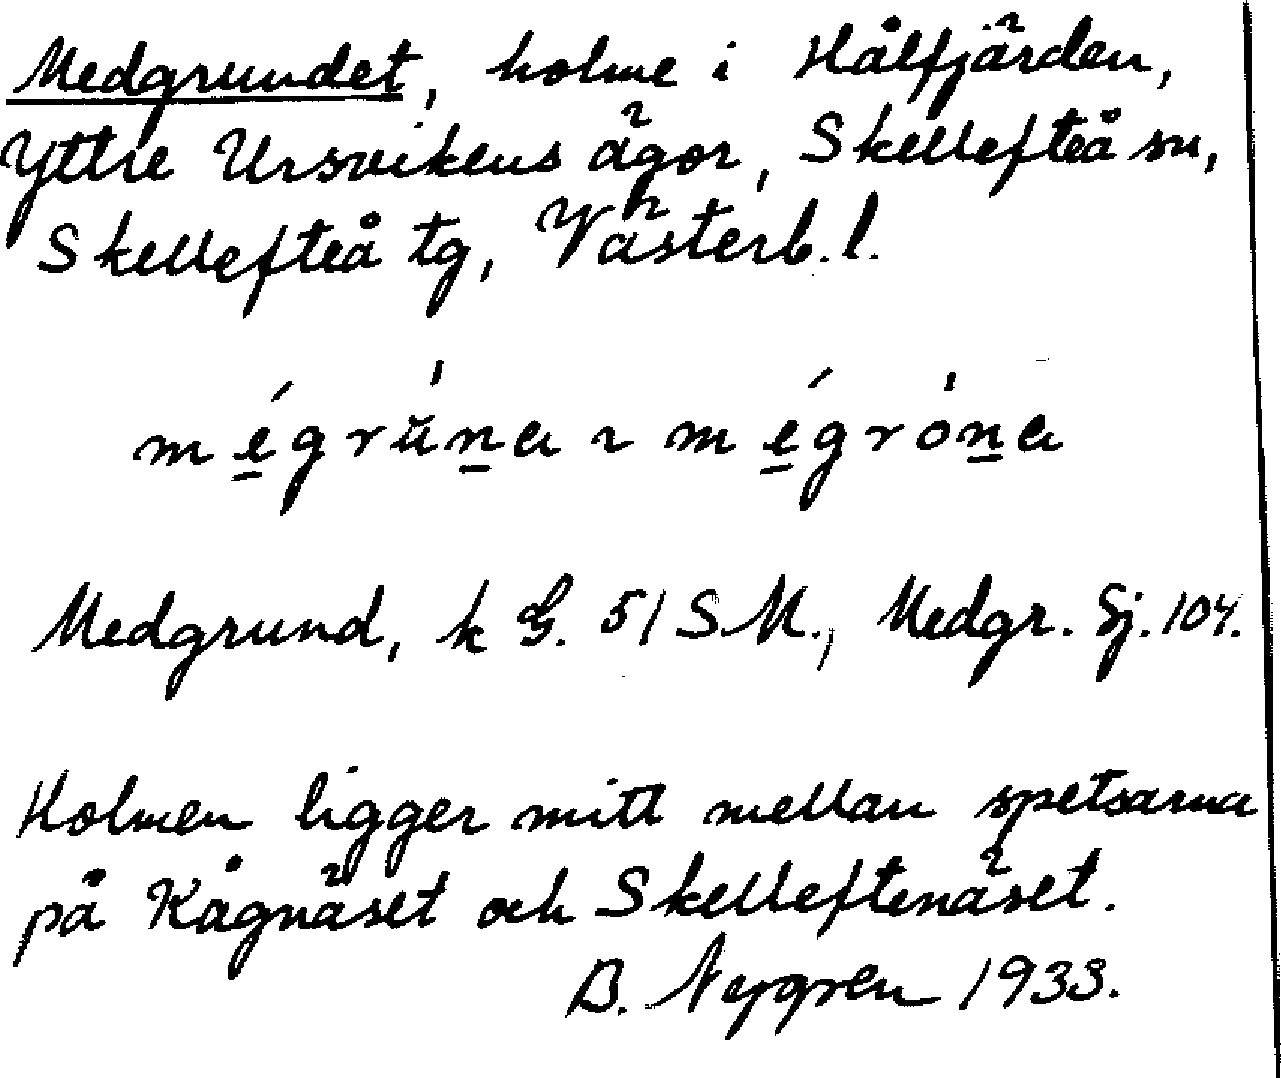 Medgrundet, holme i Hålfjärden,
Yttre Ursvikens ägor, Skellefteå sn,
Skellefteå tg, Västerb. l.
mégrŭ́na ~ mégróna
Medgrund, k G. 51 S.M., Medgr. Sj. 104.
Holmen ligger mitt mellan spetsarna
på Kågnäset och Skelleftenäset.
B. Nygren 1933.